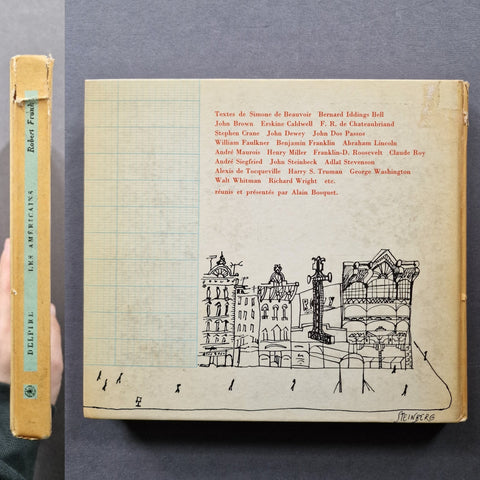 Robert Frank
LES AMÉRICAINS
DELPIRE
Textes de Simone de Beauvoir Bernard Iddings Bell
John Brown Erskine Caldwell F. R. de Chateaubriand
Stephen Crane John Dewey John Dos Passos
William Faulkner Benjamin Franklin Abraham Lincoln
André Maurois Henry Miller Franklin-D. Roosevelt Claude Roy
André Siegfried John Steinbeck Adlaï Stevenson
Alexis de Tocqueville Harry S. Truman George Washington
Walt Whitman Richard Wright etc.
réunis et présentés par Alain Bosquet.
STEINBERG